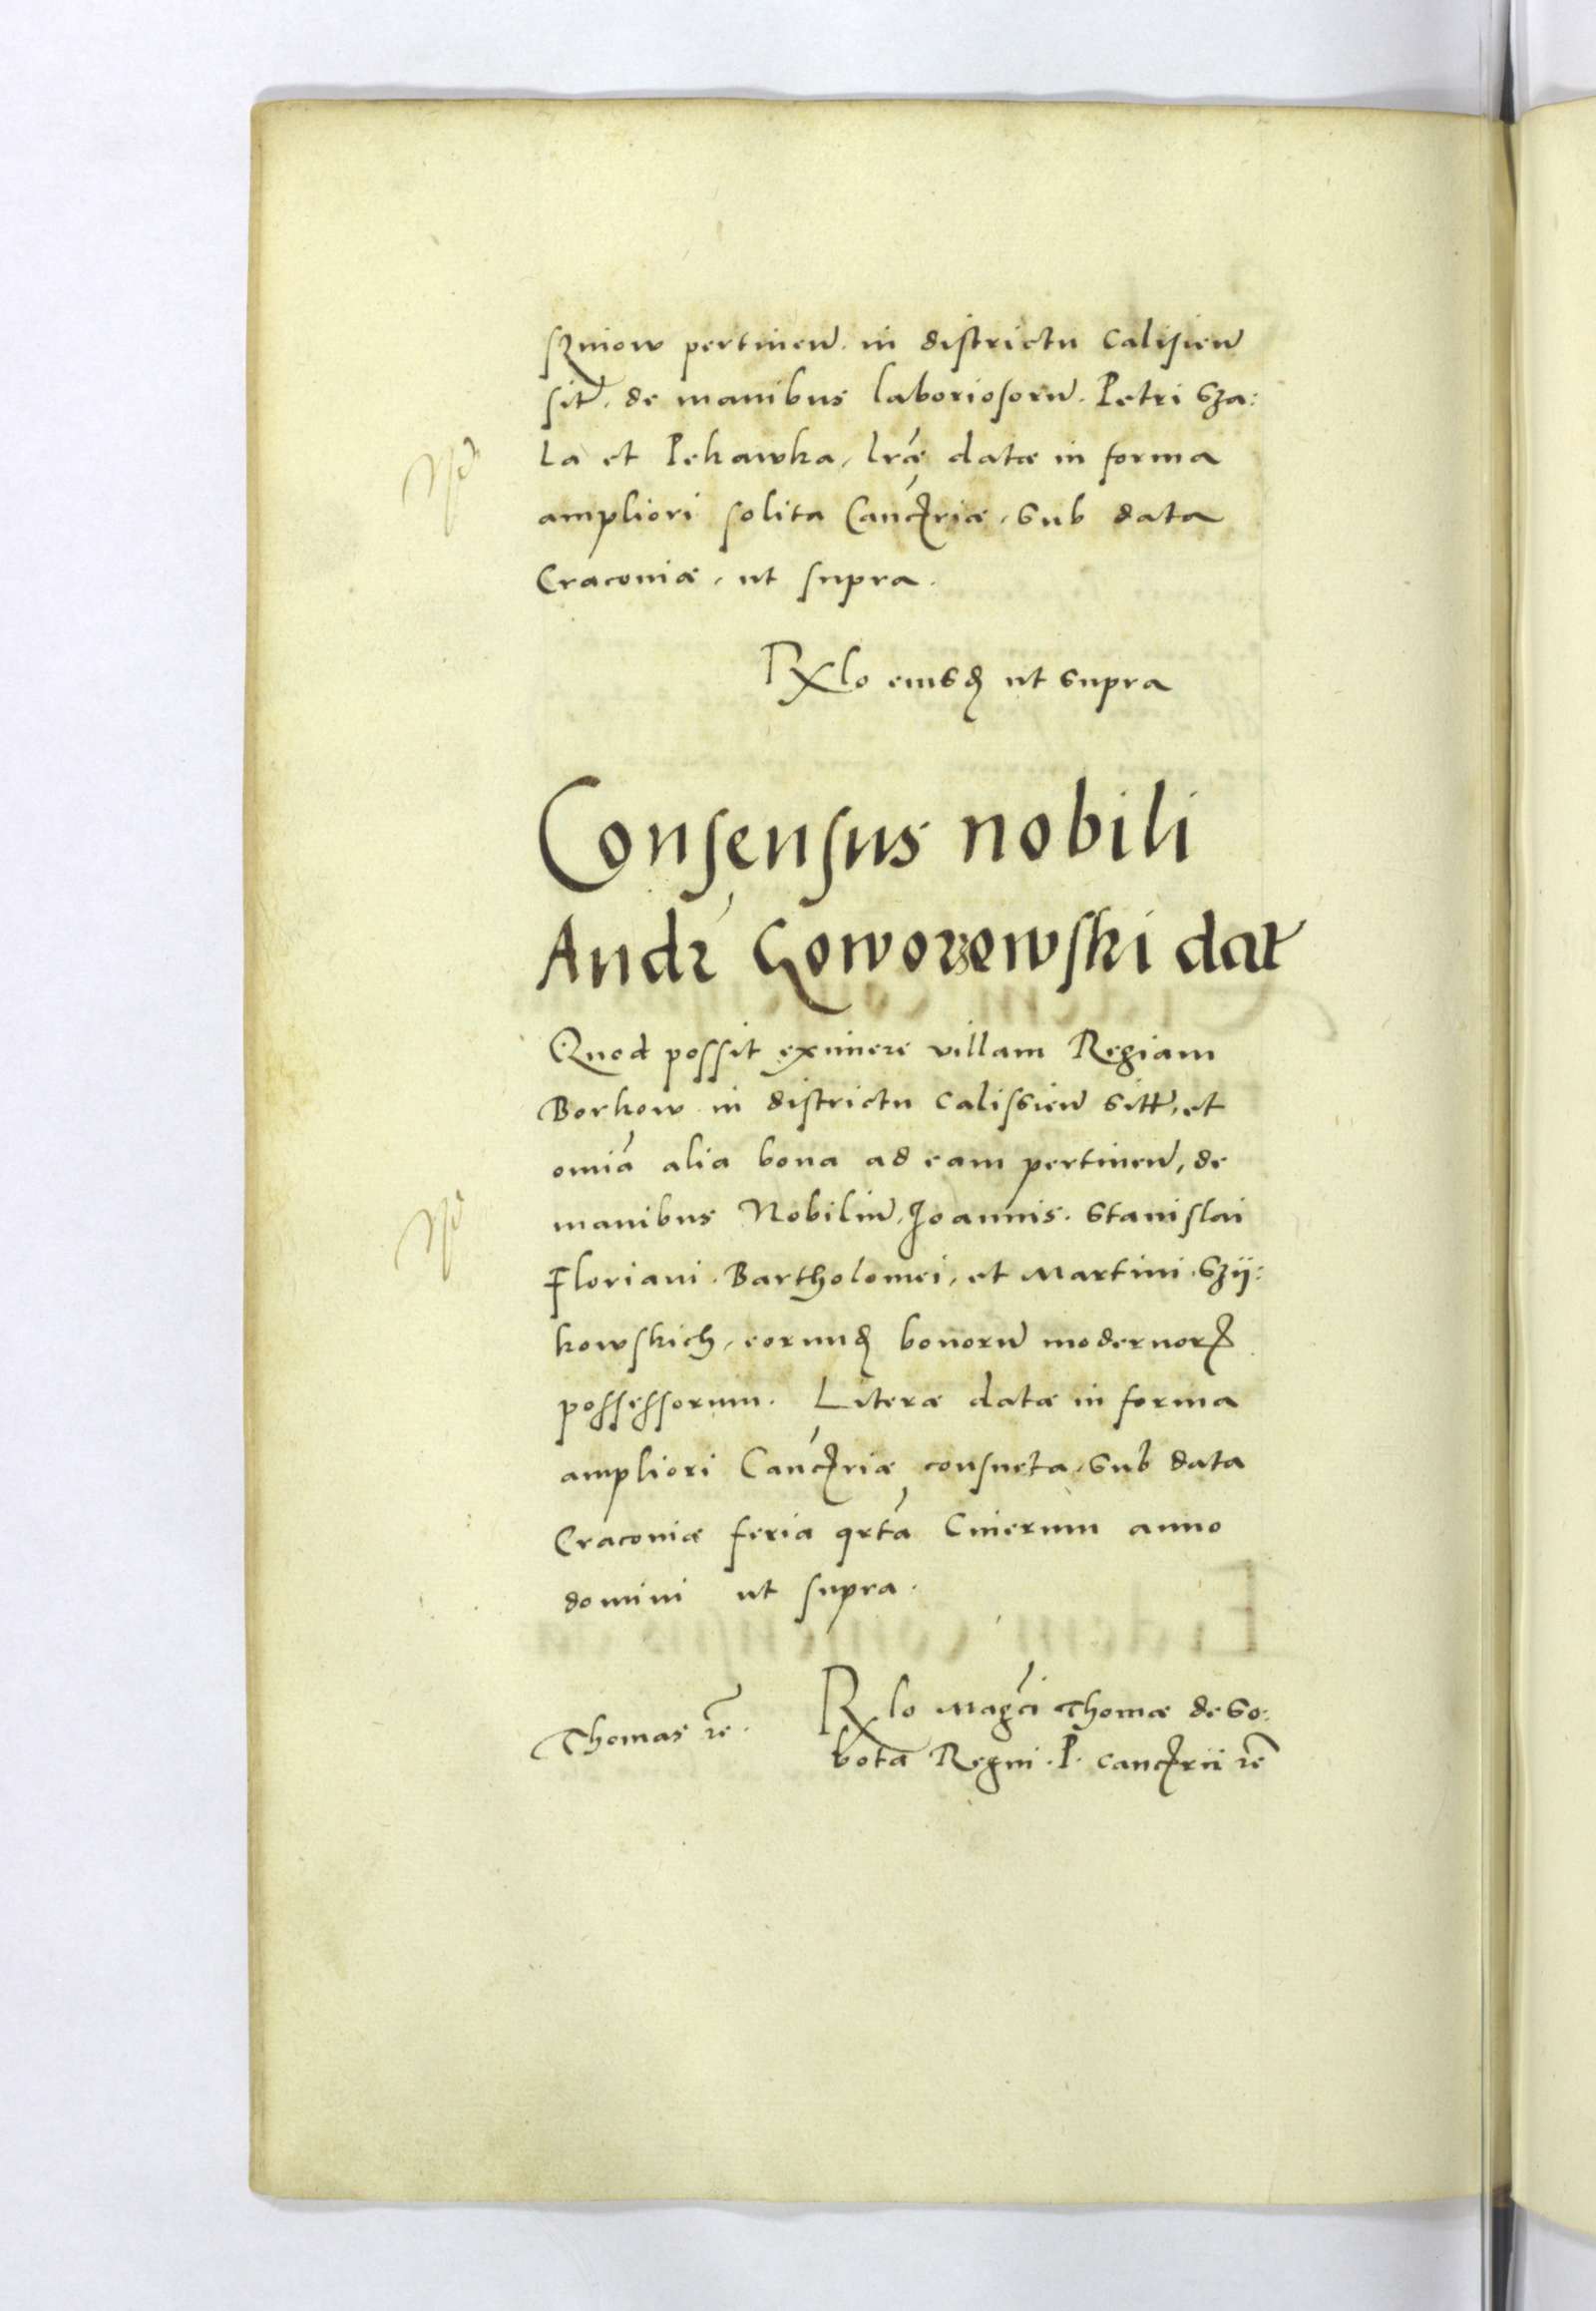 szniow pertinen. in districtu Calisien
sit. de manibus laboriosoru. Petri Sza:
la et Pekawka, lræ datæ in forma
ampliori solita Cancriæ, sub data
Craconiæ, ut supra.
Rlo eiusd ut supra
Consensus nobili
Andr Goworzewski dat
Quod possit eximere villam Regiam
Borkow in districtu Calissien sitt, et
omia alia bona ad eam pertinen, de
manibus Nobiliu, Joannis. Stanislai
Floriani. Bartholomei, et Martini Szÿ:
kowskich, eorund bonoru modernor
possessorum. Literæ datæ in forma
ampliori Cancriæ consueta, sub data
Craconiæ feria qrta Cinerum anno
domini ut supra.
Thomas rē.
Rlo Magci Thomæ de So:
bota Regni. P. Cancrii rē